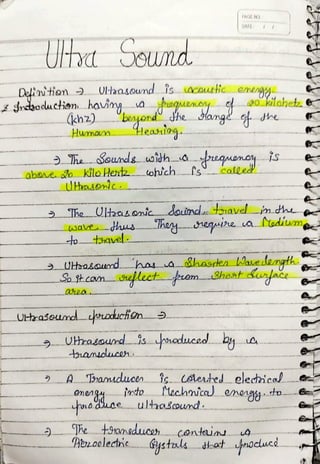 PAGE NO.
DATE: / /
Ultra Sound
Definition → Ultrasound is acoustic energy
& Introduction having a frequency of 20 kilohetz
(khz) beyond the range of the
Human Hearing.
→ The Sounds with a frequency is
above 20 kilo Hertz which is called
Ultrasonic.
→ The Ultrasonic Sound travel in the
wave thus They require a Medium
to travel.
→ Ultrasound has a Shorter Wave length
So it can reflect from Short Surface
area.
Ultrasound production →
→ Ultrasound is produced by a
transducer.
→ A Transducer is coverted electrical
energy into Mechnical energy to
produce ultrasound.
→ The transducer contains a
Piezoelectric Crystals that produced